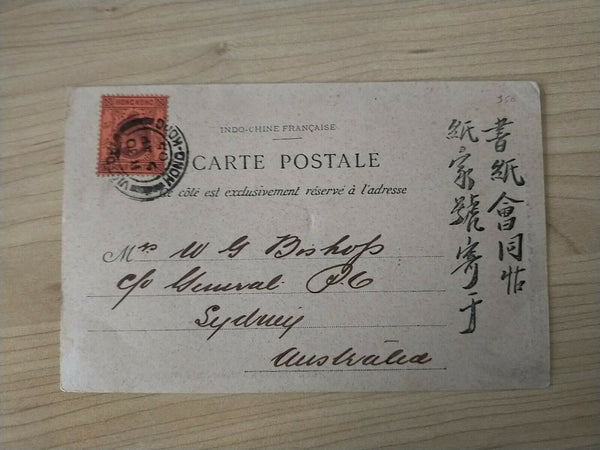 350
HONG KONG
HONG-KONG
INDO-CHINE FRANÇAISE
CARTE POSTALE
côté est exclusivement réservé à l'adresse
Mrs W G Bishop
c/o General P.O
Sydney
Australia
書紙會同帖
紙家號寄于